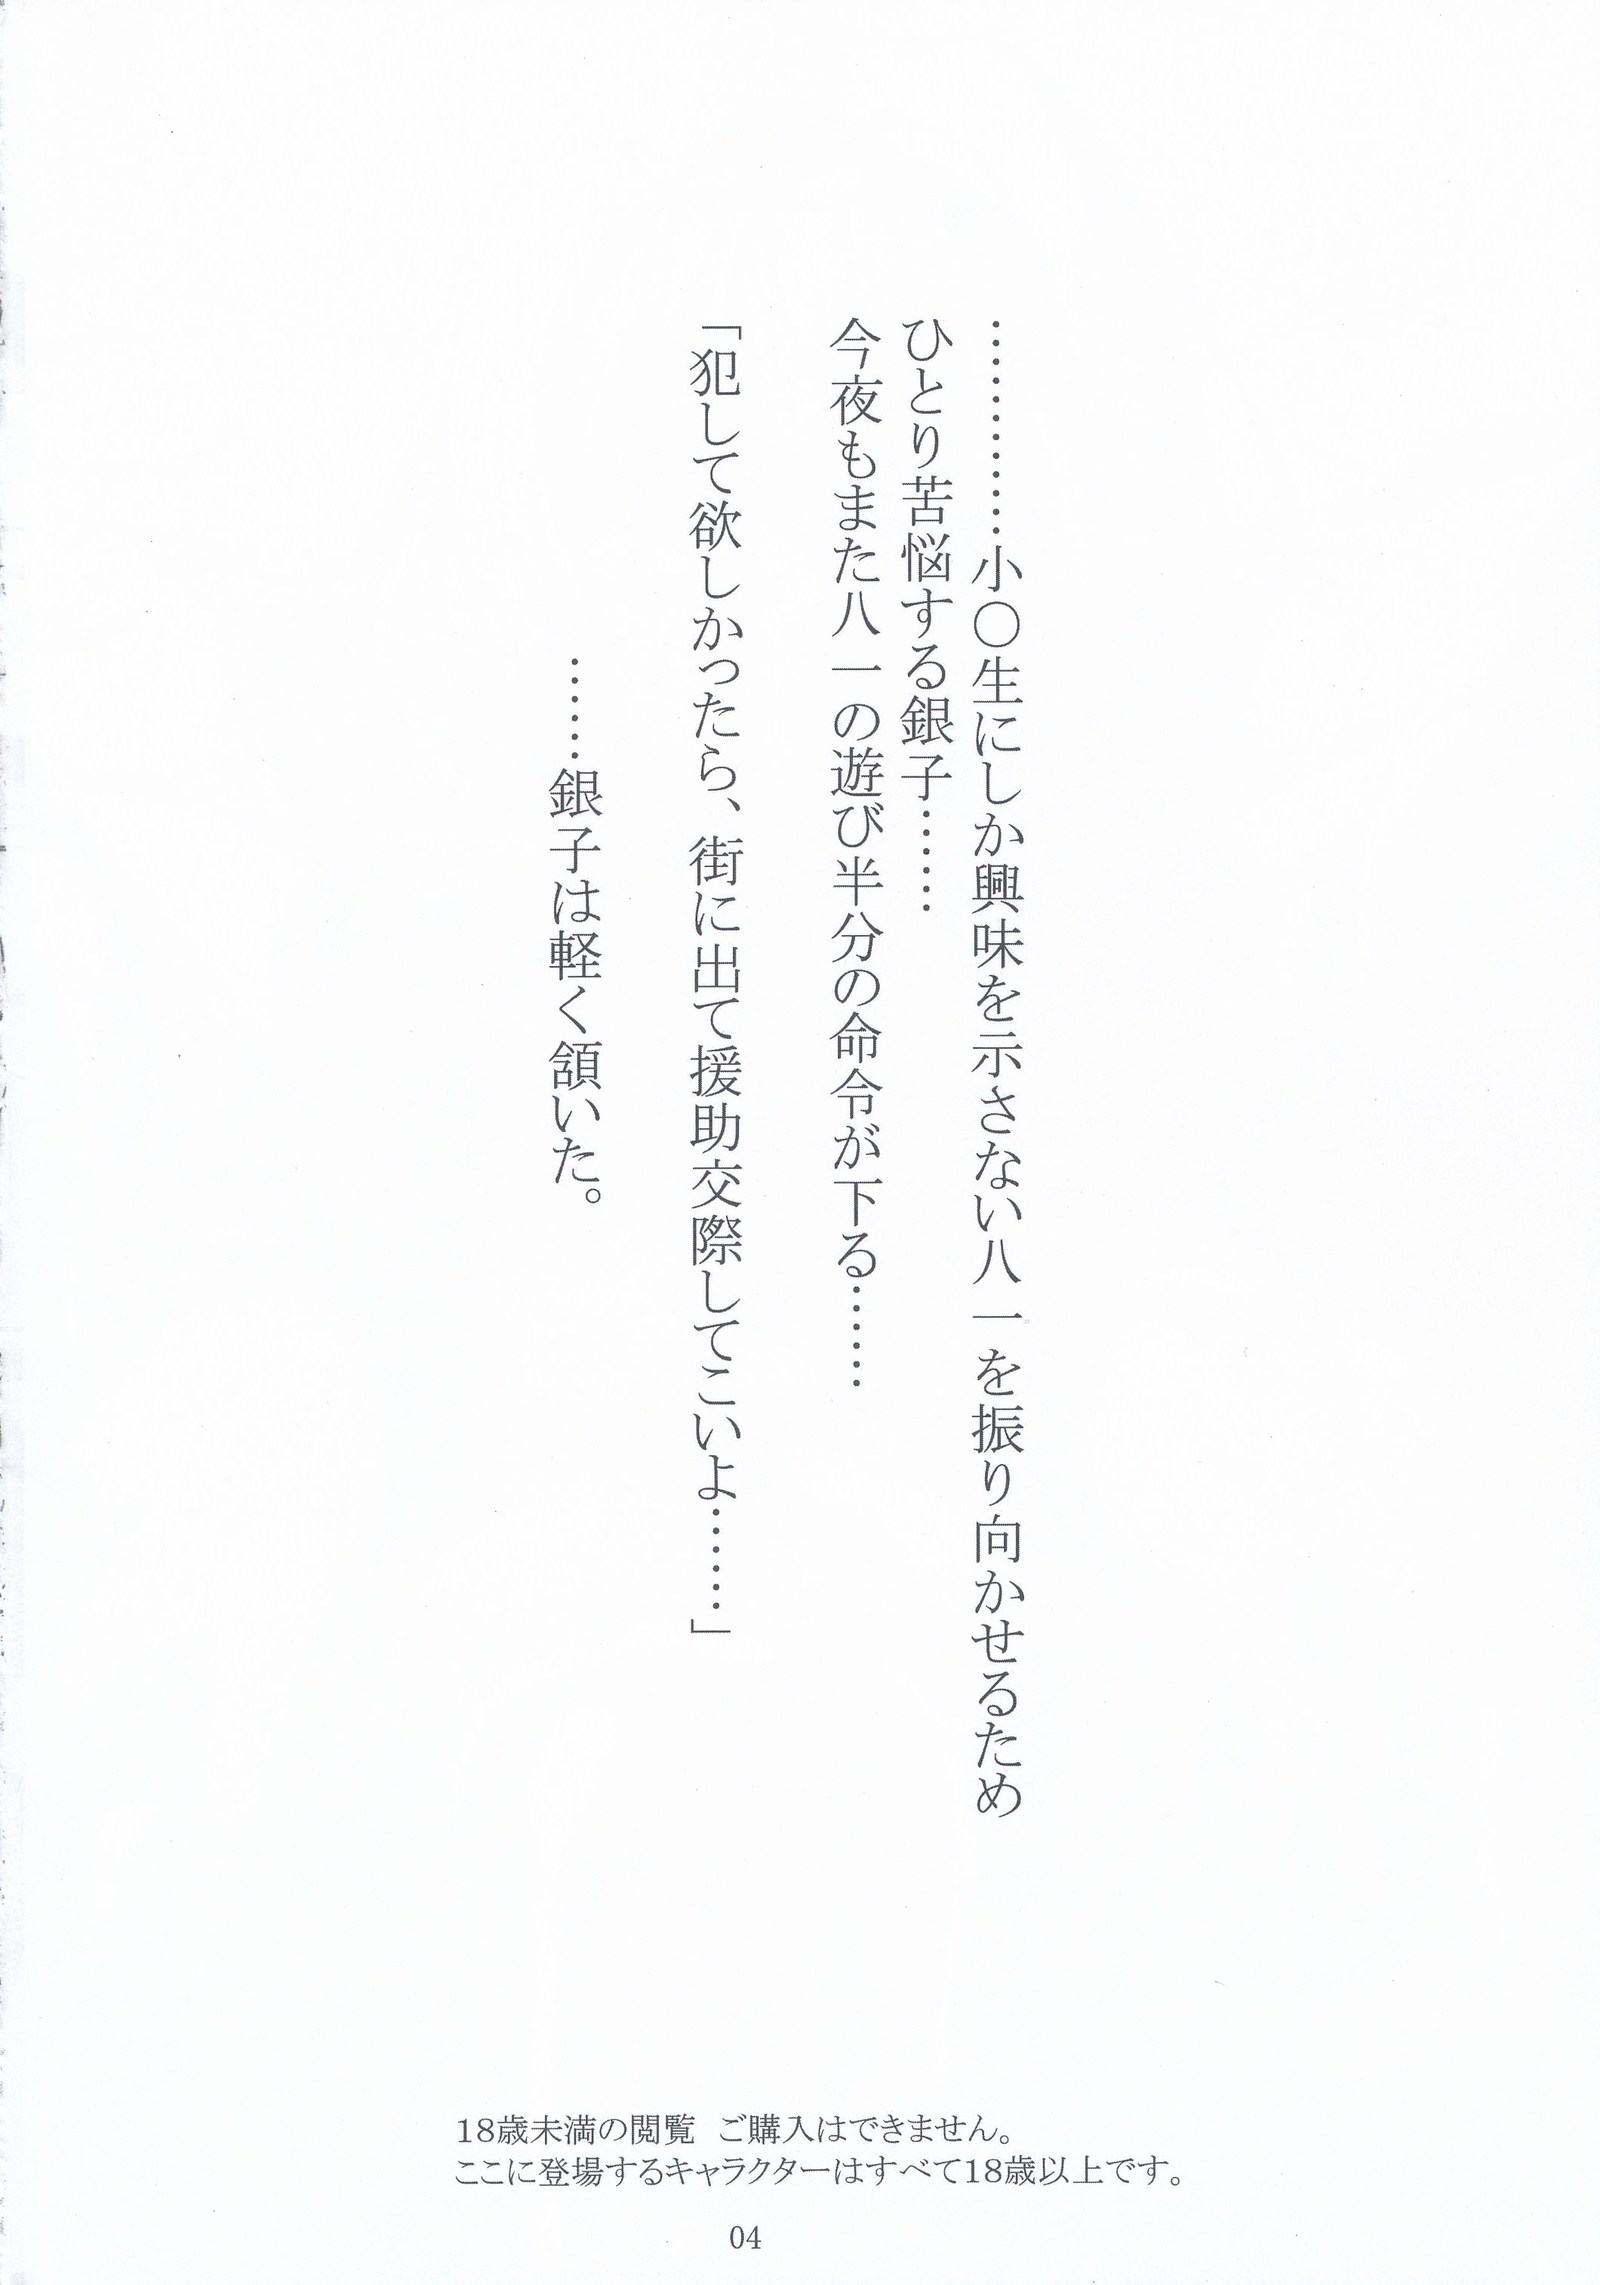 …………小〇生にしか興味を示さない八一を振り向かせるため
ひとり苦悩する銀子……
今夜もまた八一の遊び半分の命令が下る……
「犯して欲しかったら、街に出て援助交際してこいよ……」
……銀子は軽く頷いた。
18歳未満の閲覧　ご購入はできません。
ここに登場するキャラクターはすべて18歳以上です。
04